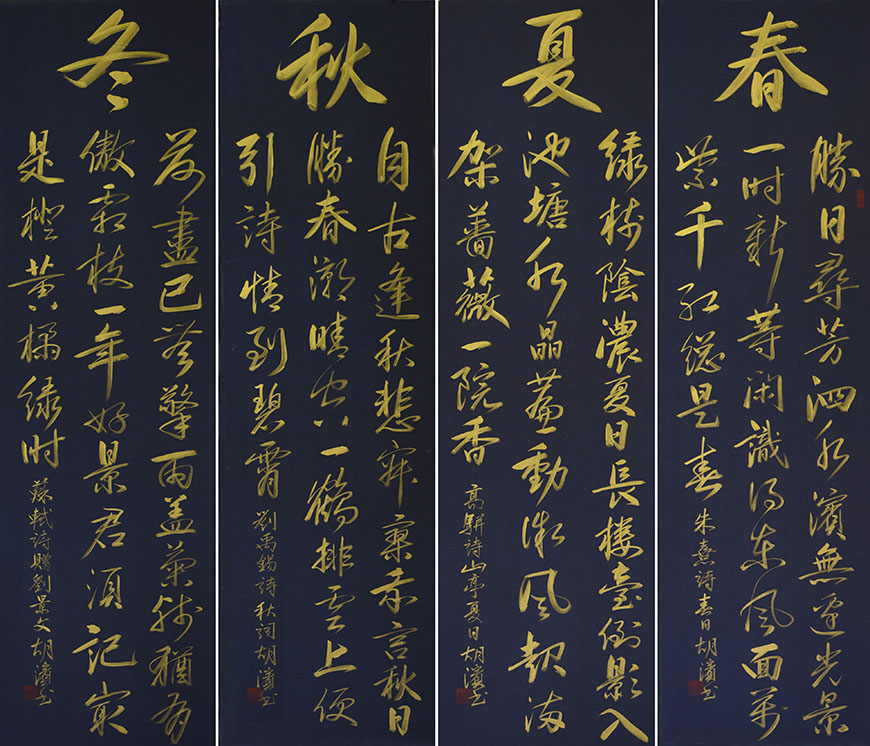 春
勝日尋芳泗水濱無邊光景
一时新等闲識得东风面萬
紫千红總是春
朱熹詩春日胡濱书
夏
绿树陰濃夏日長楼臺倒影入
池塘水晶簾動微风起滿
架薔薇一院香
高駢詩山亭夏日胡濱书
秋
自古逢秋悲寂寥我言秋日
勝春潮晴空一鶴排雲上便
引詩情到碧霄
劉禹錫詩秋词胡濱书
冬
荷盡已無擎雨盖菊殘猶有
傲霜枝一年好景君須記最
是橙黄橘绿时
蘇軾詩贈劉景文胡濱书